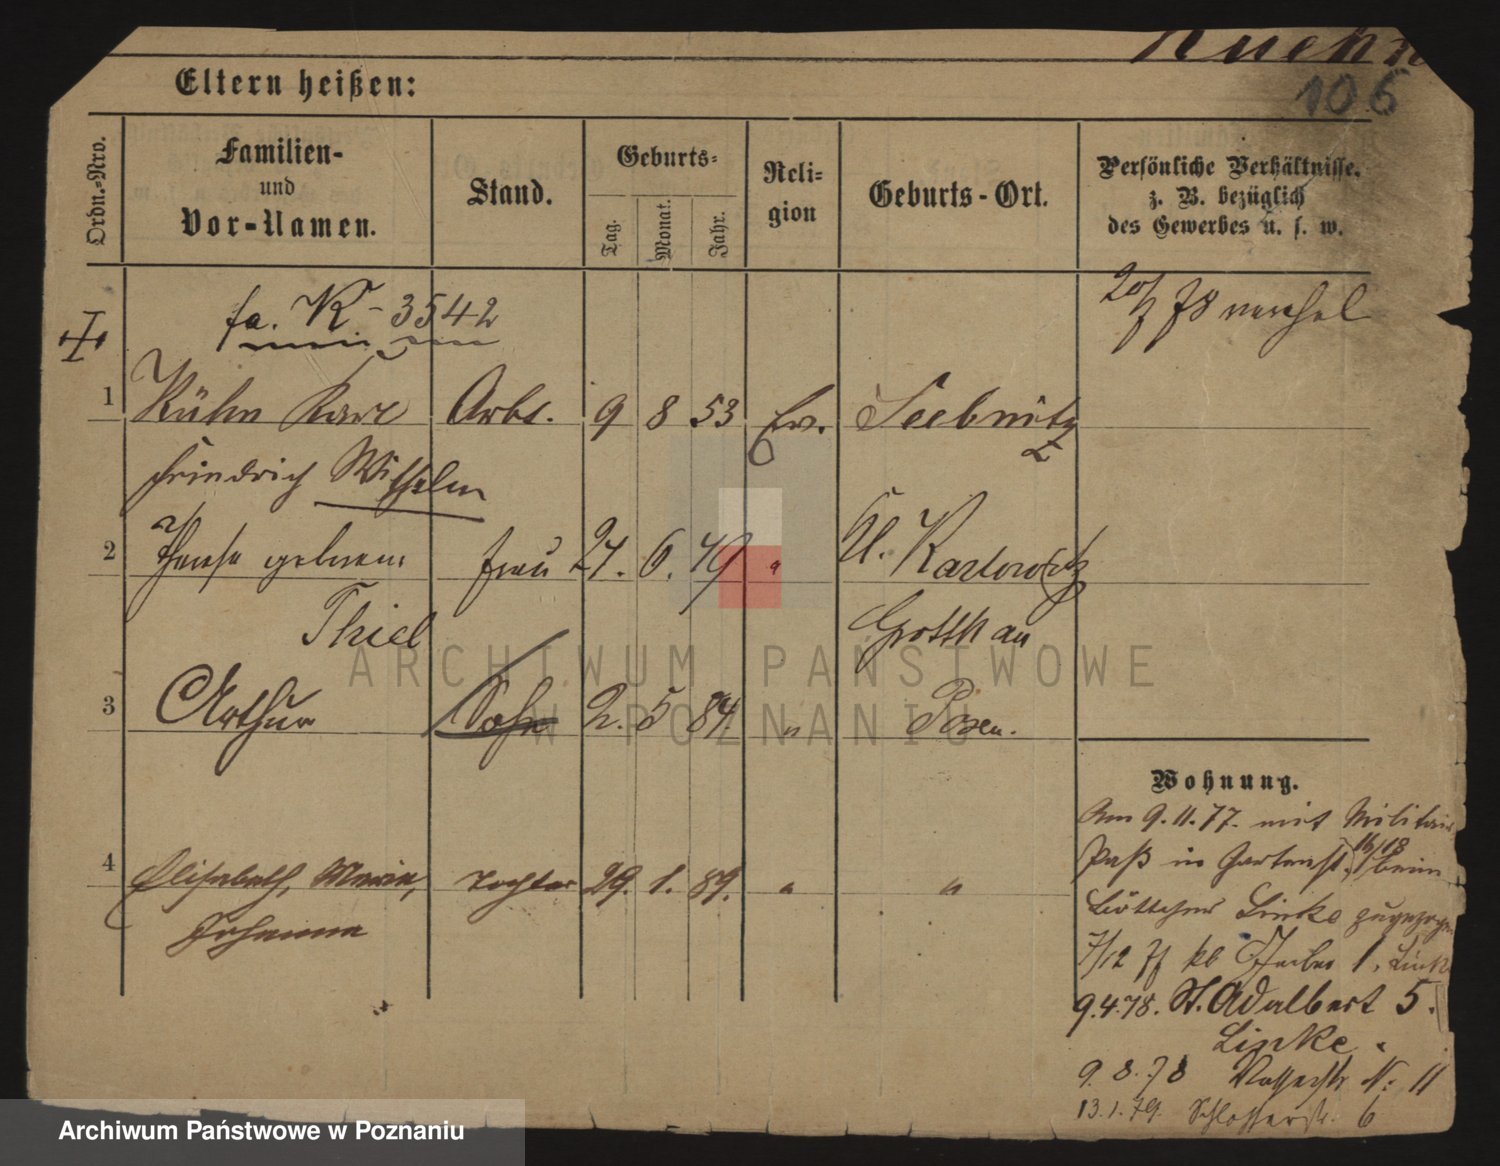 Kuehn
106
Eltern heißen:
Ordn.-Nro.
Familien-
und
Vor-Namen.
Stand.
Geburts-
Tag.
Monat.
Jahr.
Reli-
gion
Geburts-Ort.
Persönliche Verhältnisse.
z. B. bezüglich
des Gewerbes u. s. w.
fa. K-3542
1 Kühn Karl Arbt. 9 8 53 Ev. Seebnitz
Friedrich Wilhelm
2 geborene Frau 27. 6. 49 " Kl. Karlowitz
Thiel Grottkau
3 Arthur Sohn 2. 5 84. " Posen.
4 Elisabeth, Maria, Tochter 29. 1. 89. " "
Johanna
Wohnung.
Am 9.11.77. mit Militair
Paß in Gartenst. 16/18 beim
Böttcher Linke zugezogen
7/12 77 1. Linke
9.4.78. St. Adalbert 5.
Linke
9.8.78 N: 11
13.1.79. Schlosserstr. 6
ARCHIWUM PAŃSTWOWE
W POZNANIU
Archiwum Państwowe w Poznaniu